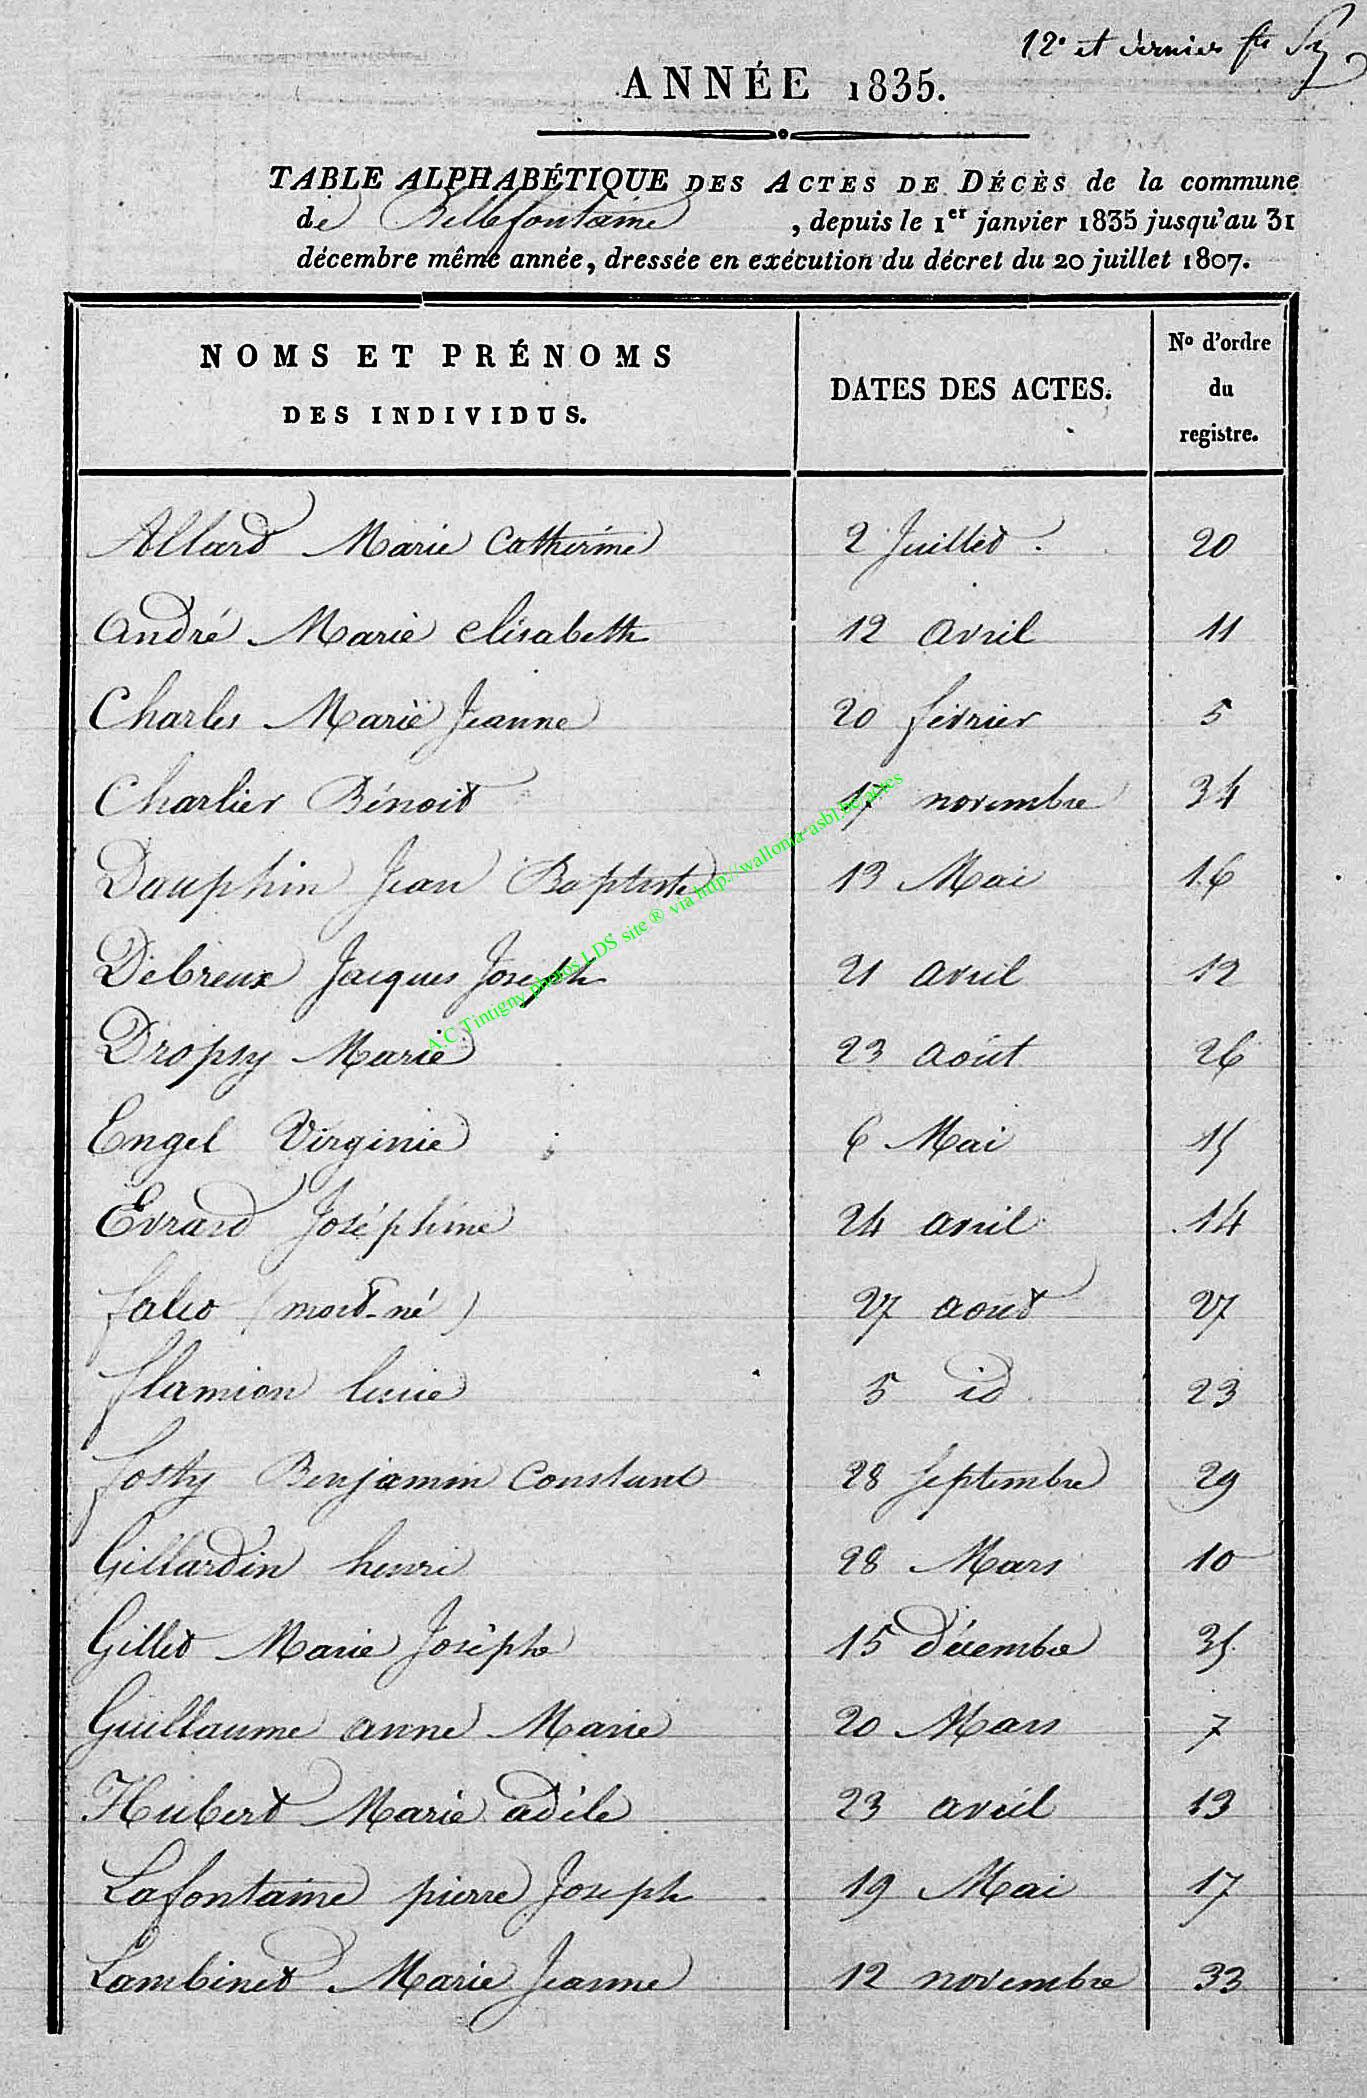 12e et dernier fte
ANNÉE 1835.
TABLE ALPHABÉTIQUE DES ACTES DE DÉCÈS de la commune
de Bellefontaine, depuis le 1er janvier 1835 jusqu'au 31
décembre même année, dressée en exécution du décret du 20 juillet 1807.
NOMS ET PRÉNOMS
DES INDIVIDUS.
DATES DES ACTES.
No d'ordre
du
registre.
Allard Marie Catherine 2 Juillet. 20
André Marie elisabeth 12 avril 11
Charles Marie Jeanne 20 février 5
Charlier Bénoit 17 novembre 34
Dauphin Jean Baptiste 13 Mai 16
Debreux Jacques Joseph 21 avril 12
Dropsy Marie 23 août 26
Engel Virginie 6 Mai 15
Evrard Joséphine 24 avril 14
(mort-né) 27 aout 27
flamion lucie 5 id 23
fosty Benjamin Constant 28 Septembre 29
Gillardin henri 28 Mars 10
Gillet Marie Josèphe 15 Décembre 35
Guillaume anne Marie 20 Mars 7
Hubert Marie adèle 23 avril 13
Lafontaine pierre Joseph 19 Mai 17
Lambinet Marie Jeanne 12 novembre 33
A.C Tintigny photos LDS site ® via http://wallonia-asbl.be/actes